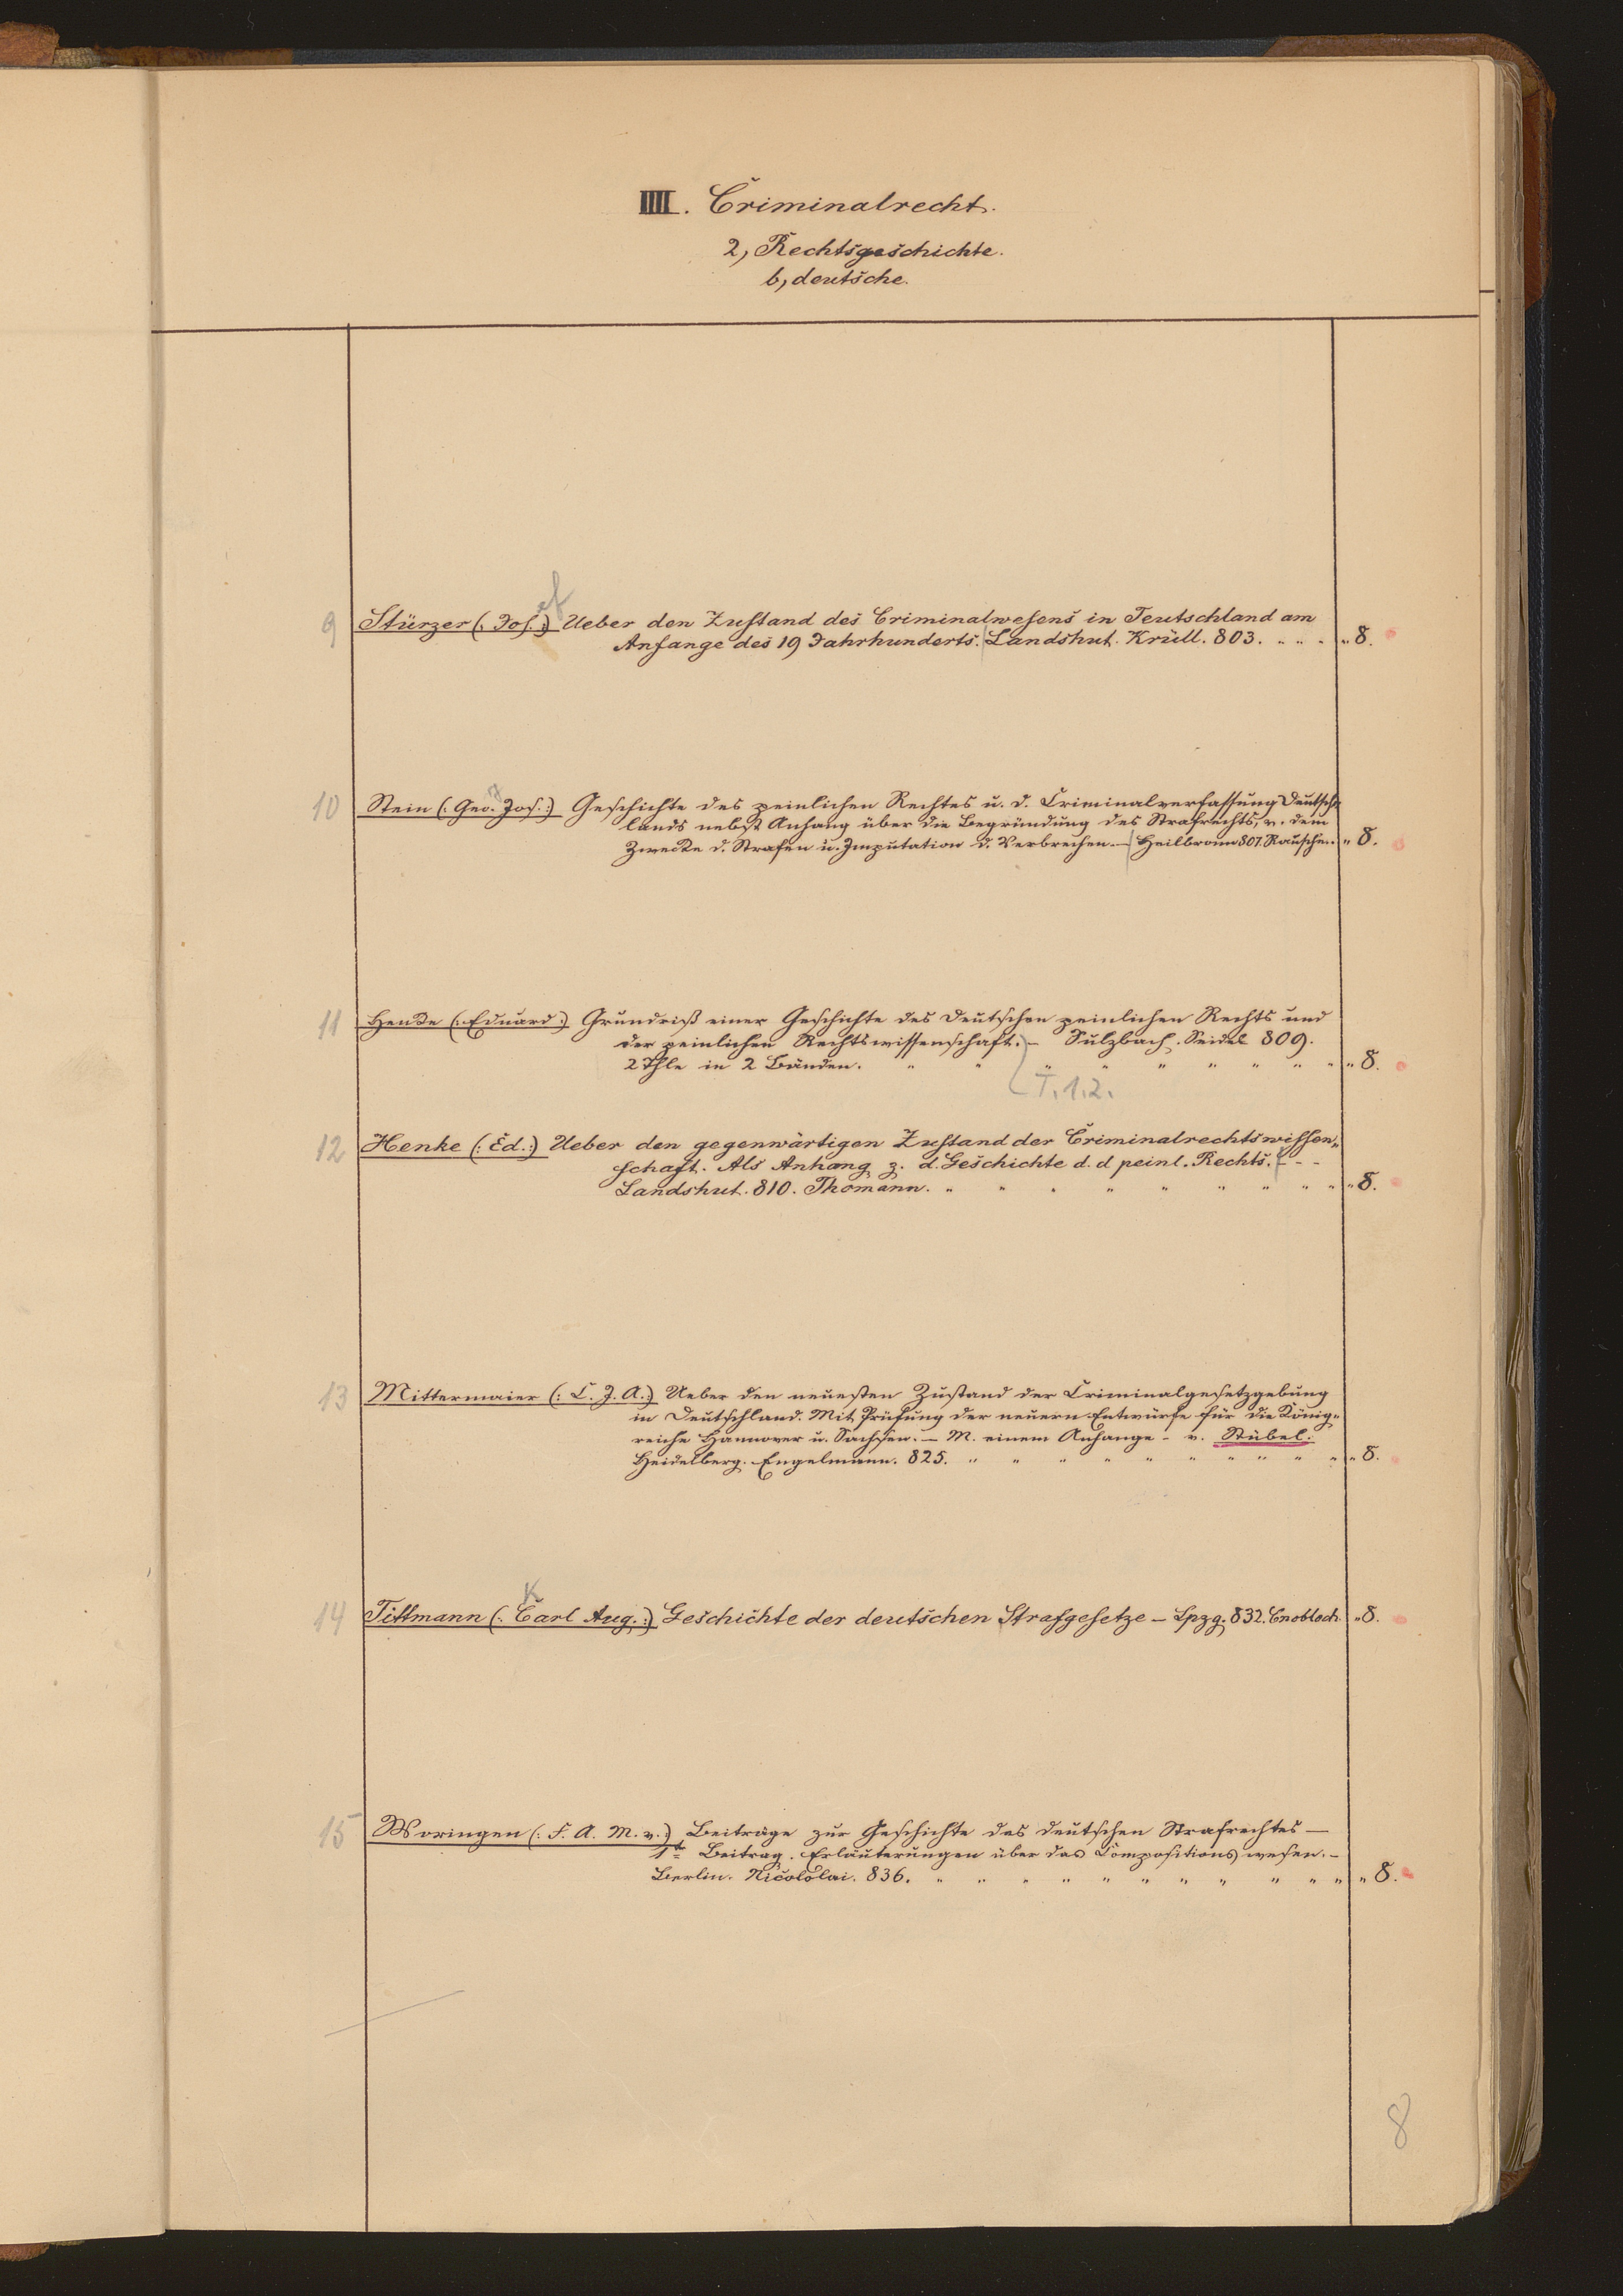 IIII. Criminalrecht.
2, Rechtsgeschichte.
b, deutsche.
9 Stürzer (: Jos. :) ef Ueber den Zustand des Criminalwesens in Teutschland am
Anfange des 19 Jahrhunderts. Landshut. Krüll. 803. „ „ „ „ 8.
10 Stein (: Geo. Jos. :) Geschichte des peinlichen Rechtes u. d. Criminalverfassung Deutsch-
lands nebst Anhang über die Begründung des Strafrechts, v. dem
Zwecke d. Strafen u. Imputation d. Verbrechen. — Heilbronn 807. „ 8.
11 Henke (: Eduard :) Grundriß einer Geschichte des deutschen peinlichen Rechts und
der peinlichen Rechtswissenschaft. — Sulzbach. Seidel 809.
2 Thle in 2 Bänden. „ „ „ „ „ „ „ „ „ „ 8.
T. 1. 2.
12 Henke (: Ed. :) Ueber den gegenwärtigen Zustand der Criminalrechtswissen„
schaft. Als Anhang z. d. Geschichte d. d peinl. Rechts. - - -
Landshut. 810. Thomann. „ „ „ „ „ „ „ „ „ „ 8.
13 Mittermaier (: C. J. A. :) Ueber den neuesten Zustand der Criminalgesetzgebung
in Deutschland. Mit Prüfung der neuern Entwürfe für die König„
reiche Hannover u. Sachsen. — M. einem Anhange - v. Stübel.
Heidelberg. Engelmann. 825. „ „ „ „ „ „ „ „ „ „ „ 8.
K
14 Tittmann (: Carl Aug. :) Geschichte der deutschen Strafgesetze — Lpzg. 832. Cnobloch. „ 8.
15 Woringen (: F. A. M. v. :) Beiträge zur Geschichte des deutschen Strafrechtes —
1r Beitrag. Erläuterungen über das Compositionswesen. —
Berlin. Nicololai. 836. „ „ „ „ „ „ „ „ „ „ „ „ 8.
8